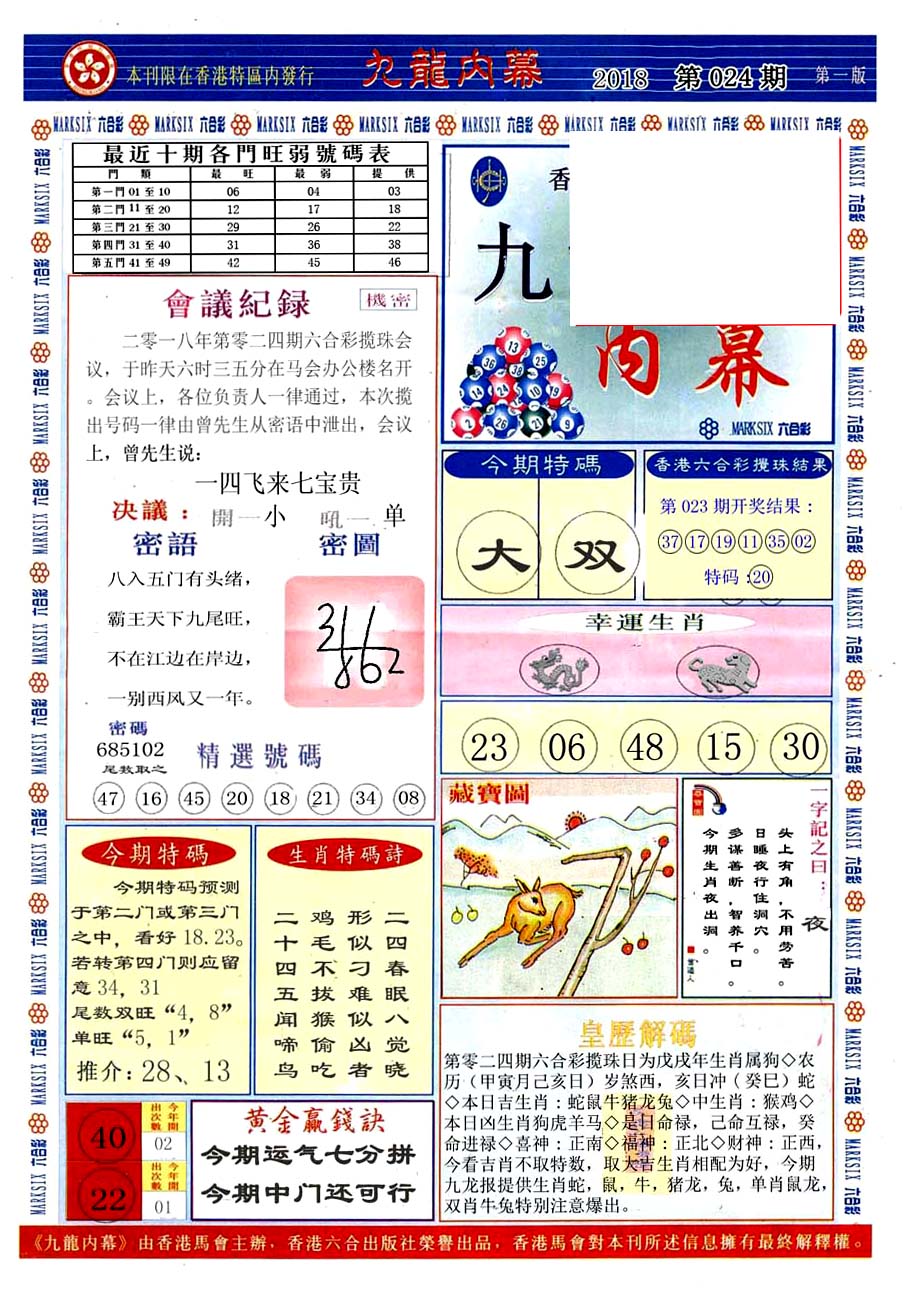 本刊限在香港特區内發行
九龍内幕
2018 第024期 第一版
MARKSIX 六合彩
最近十期各門旺弱號碼表
門類 最旺 最弱 提供
第一門 01 至 10 06 04 03
第二門 11 至 20 12 17 18
第三門 21 至 30 29 26 22
第四門 31 至 40 31 36 38
第五門 41 至 49 42 45 46
會議紀録 機密
二零一八年第零二四期六合彩揽珠会
议，于昨天六时三五分在马会办公楼名开
。会议上，各位负责人一律通过，本次揽
出号码一律由曾先生从密语中泄出，会议
上，曾先生说：
一四飞来七宝贵
决議： 開一小 吼一单
密語 密圖
八入五门有头绪，
霸王天下九尾旺，
不在江边在岸边，
一别西风又一年。
密碼
685102
尾数取之
精選號碼
47 16 45 20 18 21 34 08
香
九
内幕
13
36 25
14 10 19
2 26 21 9
MARKSIX 六合彩
今期特碼
大 双
香港六合彩攪珠結果
第 023 期开奖结果：
37 17 19 11 35 02
特码：20
幸運生肖
23 06 48 15 30
藏寶圖
一字記之曰：夜
头上有角，不用劳苦。
日睡夜行住洞穴。
多谋善断，智养千口。
今期生肖夜出洞。
今期特碼
今期特码预测
于第二门或第三门
之中，看好 18.23。
若转第四门则应留
意 34，31
尾数双旺“4，8”
单旺“5，1”
推介：28、13
生肖特碼詩
二四春眠八觉晓
形似刁难似凶者
鸡毛不拔猴偷吃
二十四五闻啼鸟
皇歷解碼
第零二四期六合彩揽珠日为戊戌年生肖属狗◇农
历（甲寅月己亥日）岁煞西，亥日冲（癸巳）蛇
◇本日吉生肖：蛇鼠牛猪龙兔◇中生肖：猴鸡◇
本日凶生肖狗虎羊马◇是日命禄，己命互禄，癸
命进禄◇喜神：正南◇福神：正北◇财神：正西，
今看吉肖不取特数，取大吉生肖相配为好，今期
九龙报提供生肖蛇，鼠，牛，猪龙，兔，单肖鼠龙，
双肖牛兔特别注意爆出。
40 今年開出次數 02
22 今年開出次數 01
黄金赢錢訣
今期运气七分拼
今期中门还可行
《九龍内幕》由香港馬會主辦，香港六合出版社榮譽出品，香港馬會對本刊所述信息擁有最終解釋權。